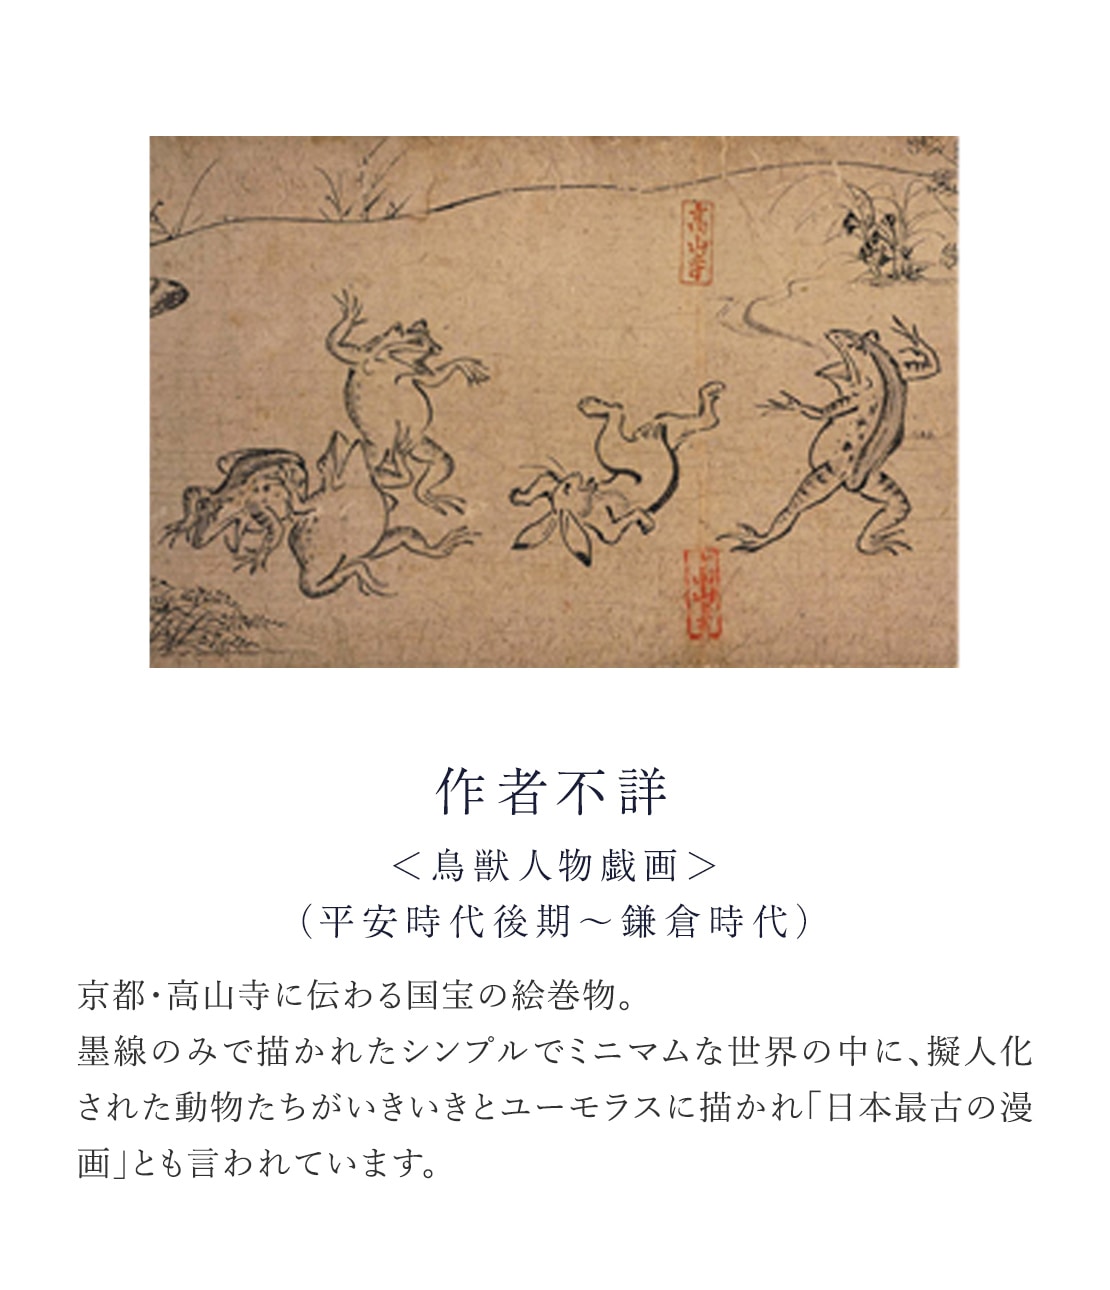 高山寺
作者不詳
＜鳥獣人物戯画＞
（平安時代後期〜鎌倉時代）
京都・高山寺に伝わる国宝の絵巻物。
墨線のみで描かれたシンプルでミニマムな世界の中に、擬人化
された動物たちがいきいきとユーモラスに描かれ「日本最古の漫
画」とも言われています。